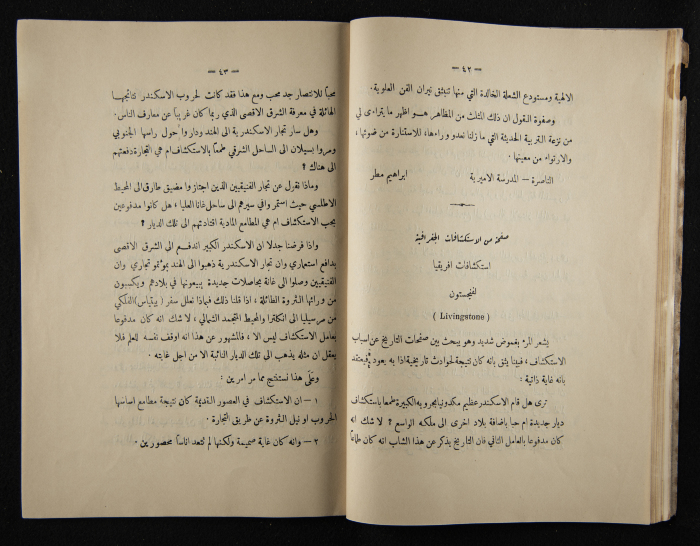 — ٤٢ —
الالهية ومستودع الشعلة الخالدة التي منها تنبثق نيران الفن العلوية .
وصفوة القول ان ذلك المثلث من المظاهر هــو اظهر ما يتراءى لي
من نزعة التربية الحديثة التي ما زلنا نعدو وراءها، للاستنارة من ضوئها ،
والارتواء من معينها .
الناصرة — المدرسة الاميرية ابراهيم مطر
صفحة من الاستكشافات الجغرافية
استكشافات افريقيا
لفنجستون
( Livingstone )
يشعر المرء بغموض شديد وهو يبحث بين صفحات التاريخ عن اسباب
الاستكشاف ، فبينا يثق بانه كان نتيجة لحوادث تاريخية اذا به يعود فيعتقد
بانه غاية ذاتية :
ترى هل قام الاسكندر عظيم مكدونيا بحروبه الكبيرة طمعا باستكشاف
ديار جديدة ام حبا باضافة بلاد اخرى الى ملكه الواسع ؟ لا شك انه
كان مدفوعا بالعامل الثاني فان التاريخ يذكر عن هذا الشاب انه كان طماعاً
— ٤٣ —
محباً للانتصار جد محب ومع هذا فقد كانت لحروب الاسكندر نتائجهــا
الهائلة في معرفة الشرق الاقصى الذي ربما كان غريباً عن معارف الناس.
وهل سار تجار الاسكندرية الى الهند وداروا حول راسها الجنوبي
ومروا بسيلان الى الساحل الشرقي طمعاً بالاستكشاف ام هي التجارة دفعتهم
الى هناك ؟
وماذا نقول عن تجار الفنيقيين الذين اجتازوا مضيق طارق الى المحيط
الاطلسي حيث استمروا في سيرهم الى ساحل غانا العليا ، هل كانوا مدفوعين
بحب الاستكشاف ام هي المطامع المادية اقتادتهم الى تلك الديار ؟
واذا فرضنا جدلا ان الاسكندر الكبير اندفــع الى الشرق الاقصى
بدافع استعماري وان تجار الاسكندرية ذهبوا الى الهند تجاري وان
الفنيقيين وصلوا الى غانة بحاصلات جديدة يبيعونها في بلادهم ويكسبون
من ورائها الثروة الطائلة ، اذا قلنا ذلك فبماذا نعلل سفر ( بيثياس)الفلكي
من مرسيليا الى انكلترا والمحيط المتجمد الشمالي ، لا شك انه كان مدفوعا
بعامل الاستكشاف ليس الا ، فالمشهور عن هذا انه اوقف نفسه للعلم فلا
يعقل ان مثله يذهب الى تلك الديار النائية الا من اجل غايته .
وعلى هذا نستنتج مما مر امرين :
١ — ان الاستكشاف في العصور القديمة كان نتيجة مطامع اساسها
الحروب او نيل الثروة عن طريق التجارة .
٢ — وانه كان غاية صميمة ولكنها لم تتعد اناساً محصورين .